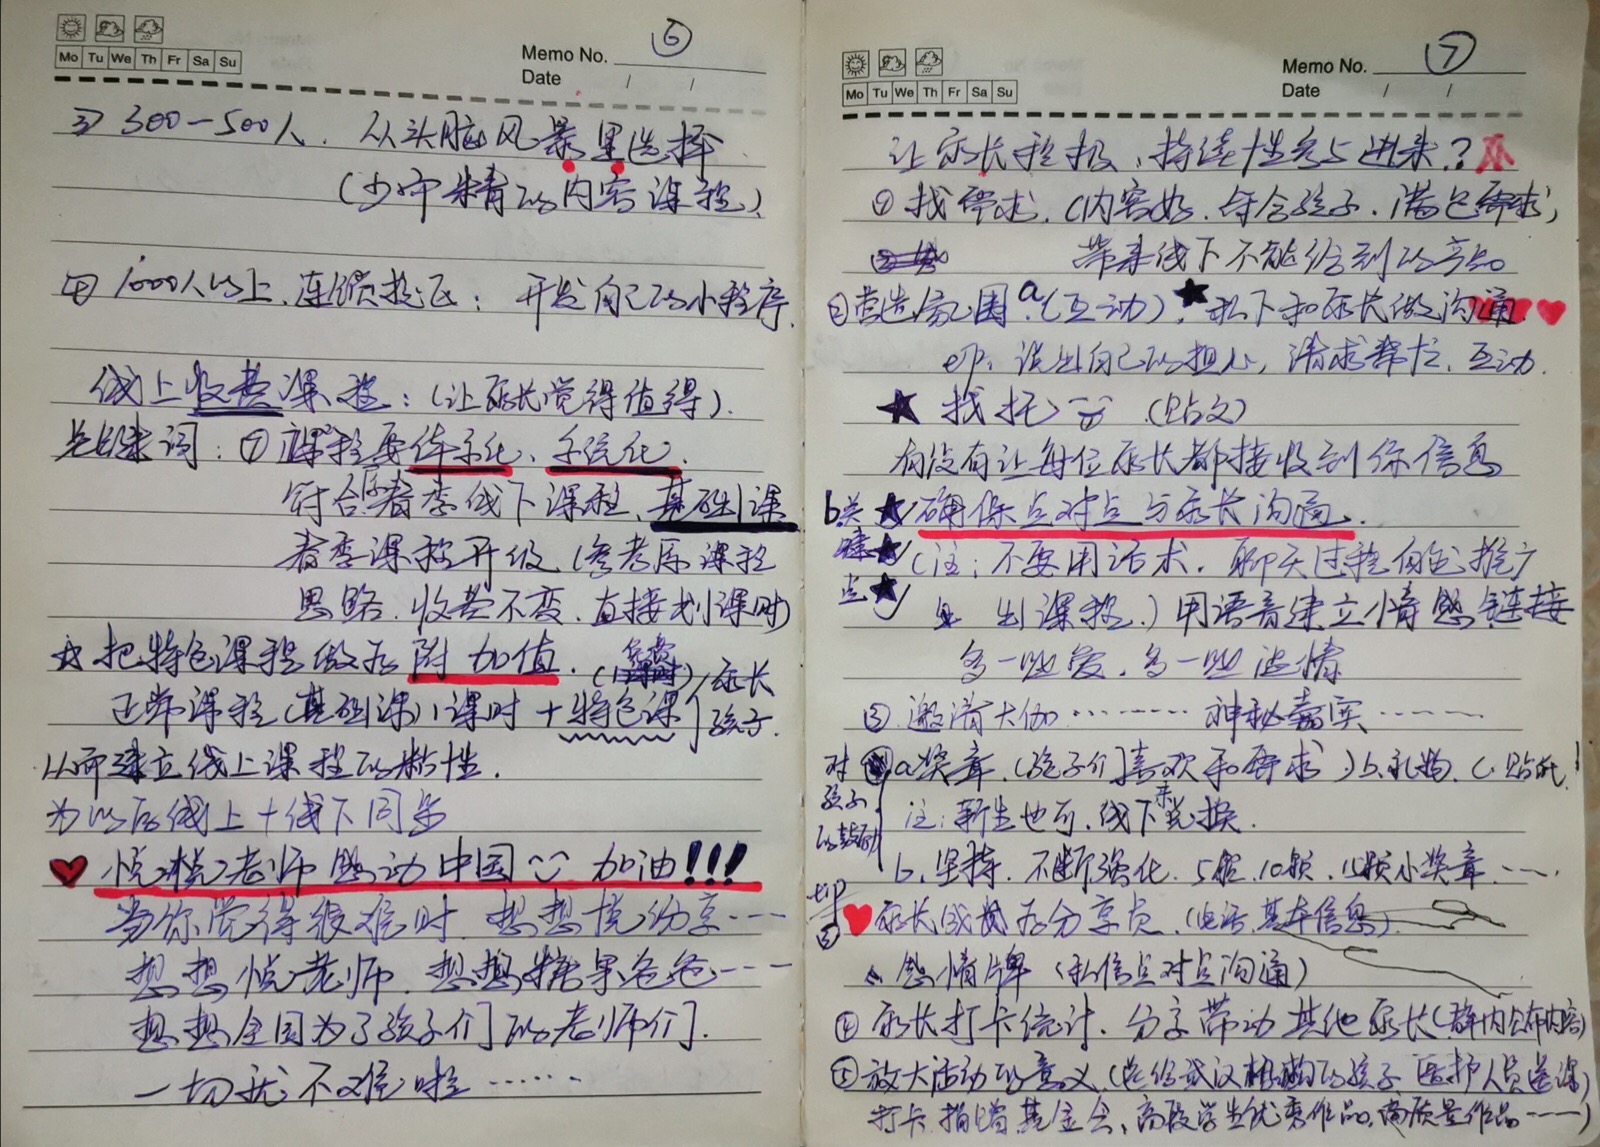 Mo Tu We Th Fr Sa Su
Memo No. ⑥
Date / /
③ 300-500人. 从头脑风暴里选择
(少而精的内容课程)
④ 1000人以上、连锁校区: 开发自己的小程序.
线上收费课程: (让家长觉得值得).
关键词: ① 课程要体系化、系统化.
符合春季线下课程、基础课
春季课程升级 (参考原课程
思路. 收费不变. 直接划课时)
☆ 把特色课程做为附加值. (免费
正常课程(基础课)1课时 + 特色课 家长
孩子.
从而建立线上课程的粘性.
为以后线上+线下同步
悦悦老师感动中国 加油!!!
当你觉得很难时. 想想悦分享……
想想悦老师. 想想糖果爸爸……
想想全国为了孩子们的老师们.
一切就不难啦……
Mo Tu We Th Fr Sa Su
Memo No. ⑦
Date / /
让家长积极、持续性参与进来?
① 找需求. (内容好. 符合孩子. 满足需求,
带来线下不能给到的产品
② 营造氛围 a.(互动). ★ 私下和家长做沟通
即: 说出自己的担心, 请求帮忙、互动.
★ 找托 (贴文)
有没有让每位家长都接收到你信息
b关键点 ★ 确保点对点与家长沟通.
★ (注: 不要用话术. 聊天过程自己推广
★ 出课程.) 用语音建立情感链接
多一些爱. 多一些热情
③ 邀请大咖…… 神秘嘉宾……
对孩子的鼓励 ④ a奖章. (孩子们喜欢和需求) b.礼物. c.贴纸!
注: 新生也可. 线下来兑换.
b. 坚持. 不断强化. 5颗. 10颗. 15颗小奖章……
③ 家长成为分享员. (电话. 基本信息)
感情牌 (私信点对点沟通)
④ 家长打卡统计. 分享带动其他家长(群内公布内容)
⑤ 放大活动的意义. (能给武汉机构的孩子 医护人员送课)
打卡捐赠基金会、高段学生优秀作品. 高质量作品……)